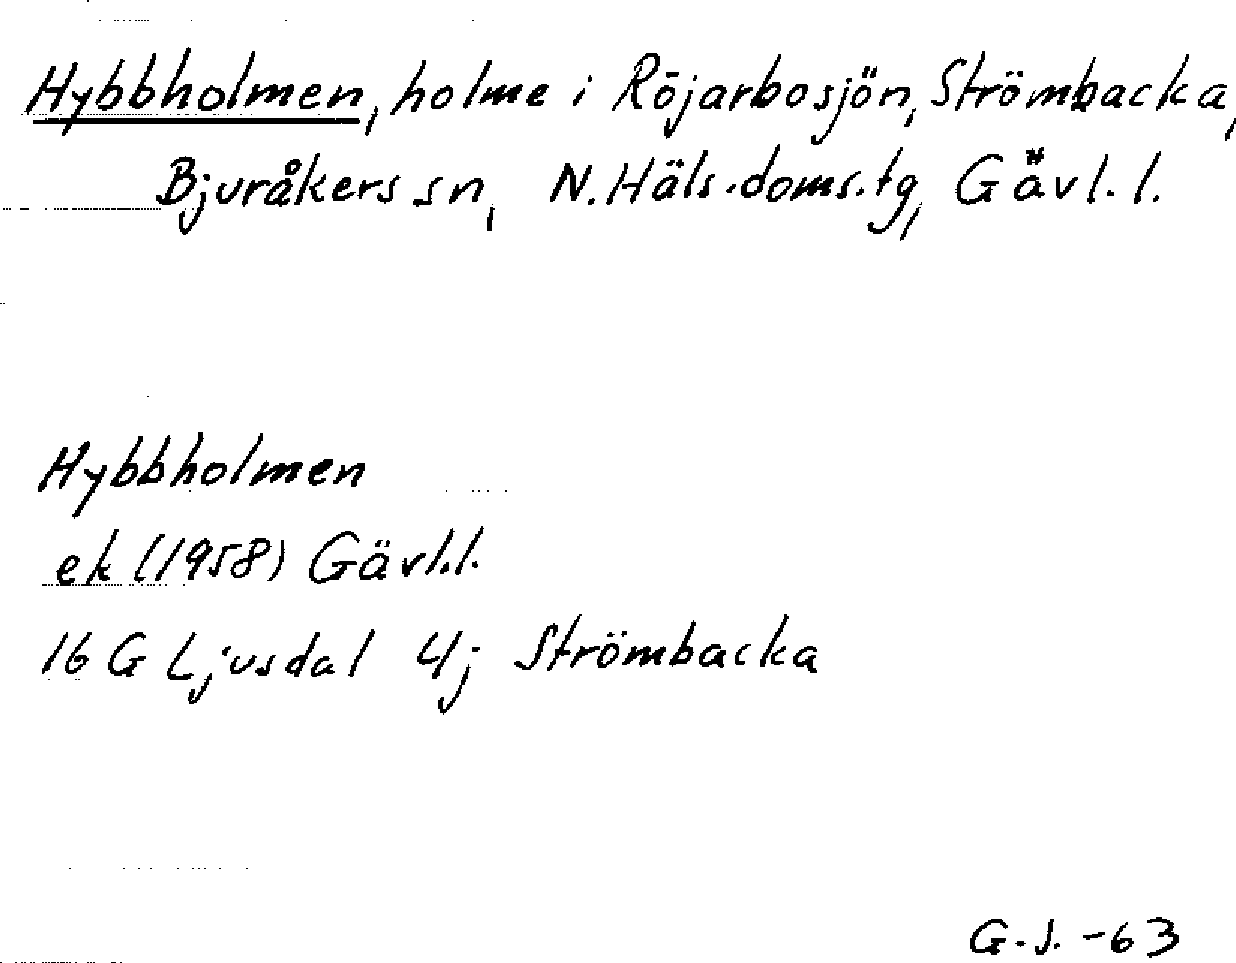 Hybbholmen, holme i Röjarbosjön, Strömbacka,
Bjuråkers sn, N. Häls. doms. tg, Gävl. l.
Hybbholmen
ek (1958) Gävl. l.
16 G Ljusdal 4j Strömbacka
G. J. -63